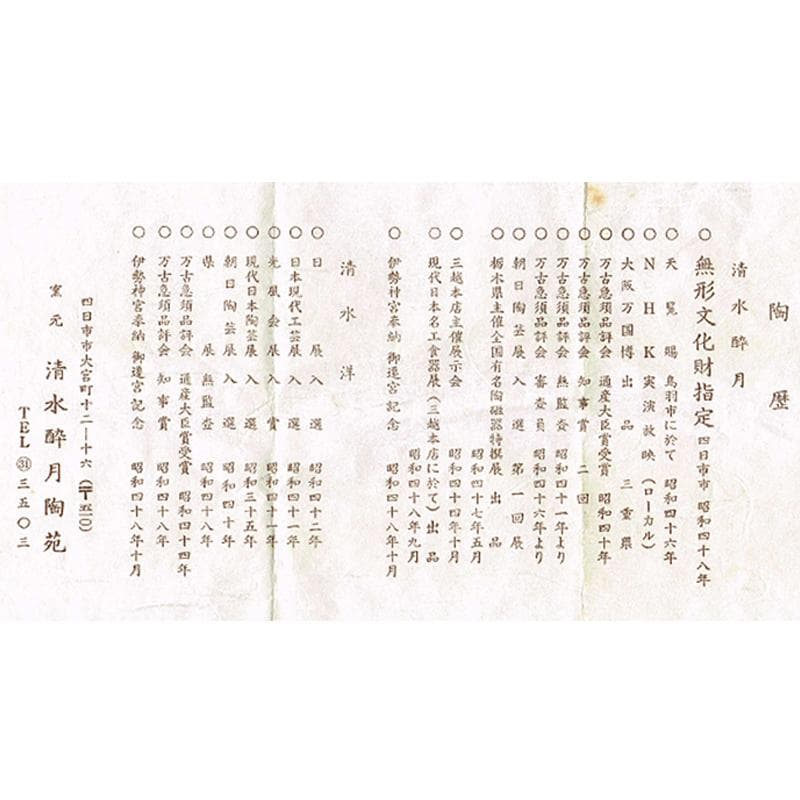 陶歴
清水醉月
○無形文化財指定 四日市市 昭和四十八年
○天覧賜 鳥羽市に於て 昭和四十六年
○NHK実演放映(ローカル)
○大阪万国博出品 三重県
○万古急須品評会 通産大臣賞受賞 昭和四十年
○万古急須品評会 知事賞 二回
○万古急須品評会 無監査 昭和四十一年より
○万古急須品評会 審査員 昭和四十六年より
○朝日陶芸展入選 第一回展
○栃木県主催全国有名陶磁器特撰展 出品
昭和四十七年五月
○三越本店主催展示会 昭和四十年十月
○現代日本名工食器展(三越本店に於て)出品
昭和四十八年九月
○伊勢神宮奉納 御遷宮記念 昭和四十八年十月
清水洋
○日展入選 昭和四十二年
○日本現代工芸展入選 昭和四十一年
○光風会展入賞 昭和四十一年
○現代日本陶芸展入選 昭和三十五年
○朝日陶芸展入選 昭和四十年
○県展無監査 昭和四十八年
○万古急須品評会 通産大臣賞受賞 昭和四十四年
○万古急須品評会 知事賞 昭和四十八年
○伊勢神宮奉納 御遷宮記念 昭和四十八年十月
四日市市大宮町十二―十六(〒五一〇)
窯元 清水醉月陶苑
TEL ㉛三五〇三